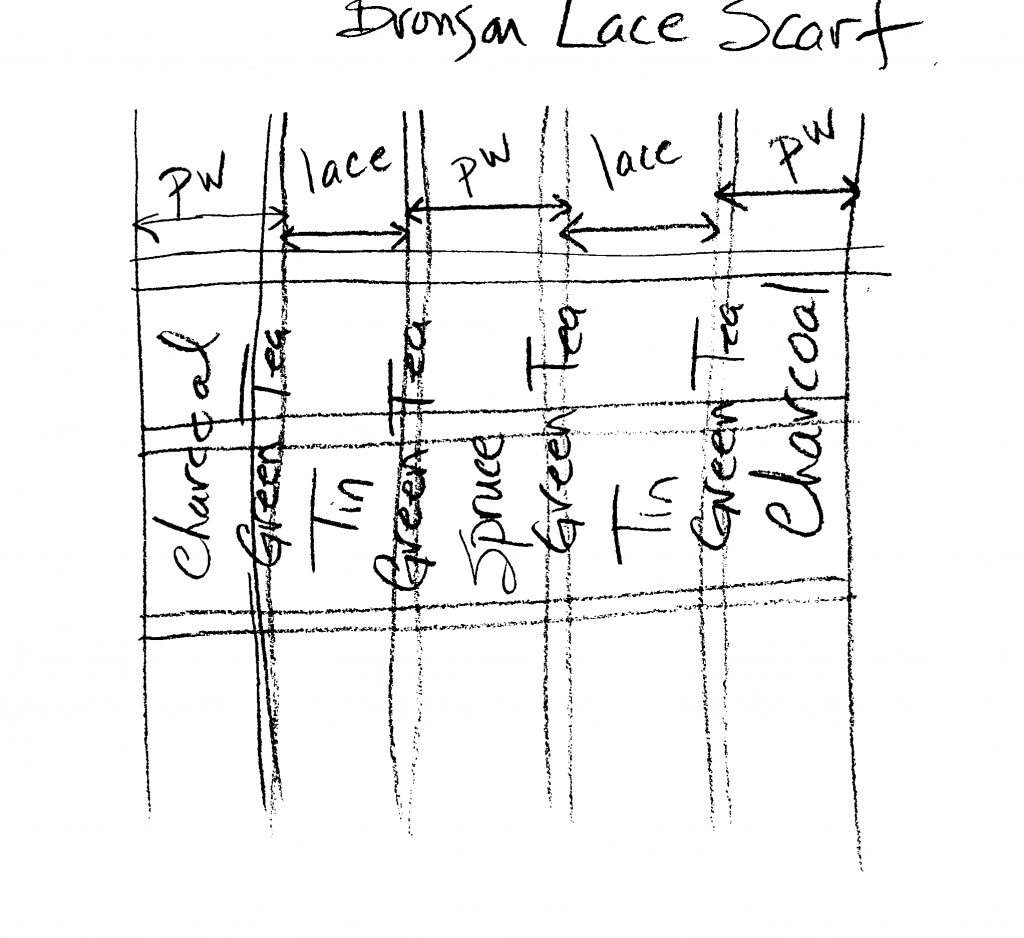 Bronson Lace Scarf
PW lace PW lace PW
Charcoal
Green Tea
Tin
Green Tea
Spruce
Green Tea
Tin
Green Tea
Charcoal